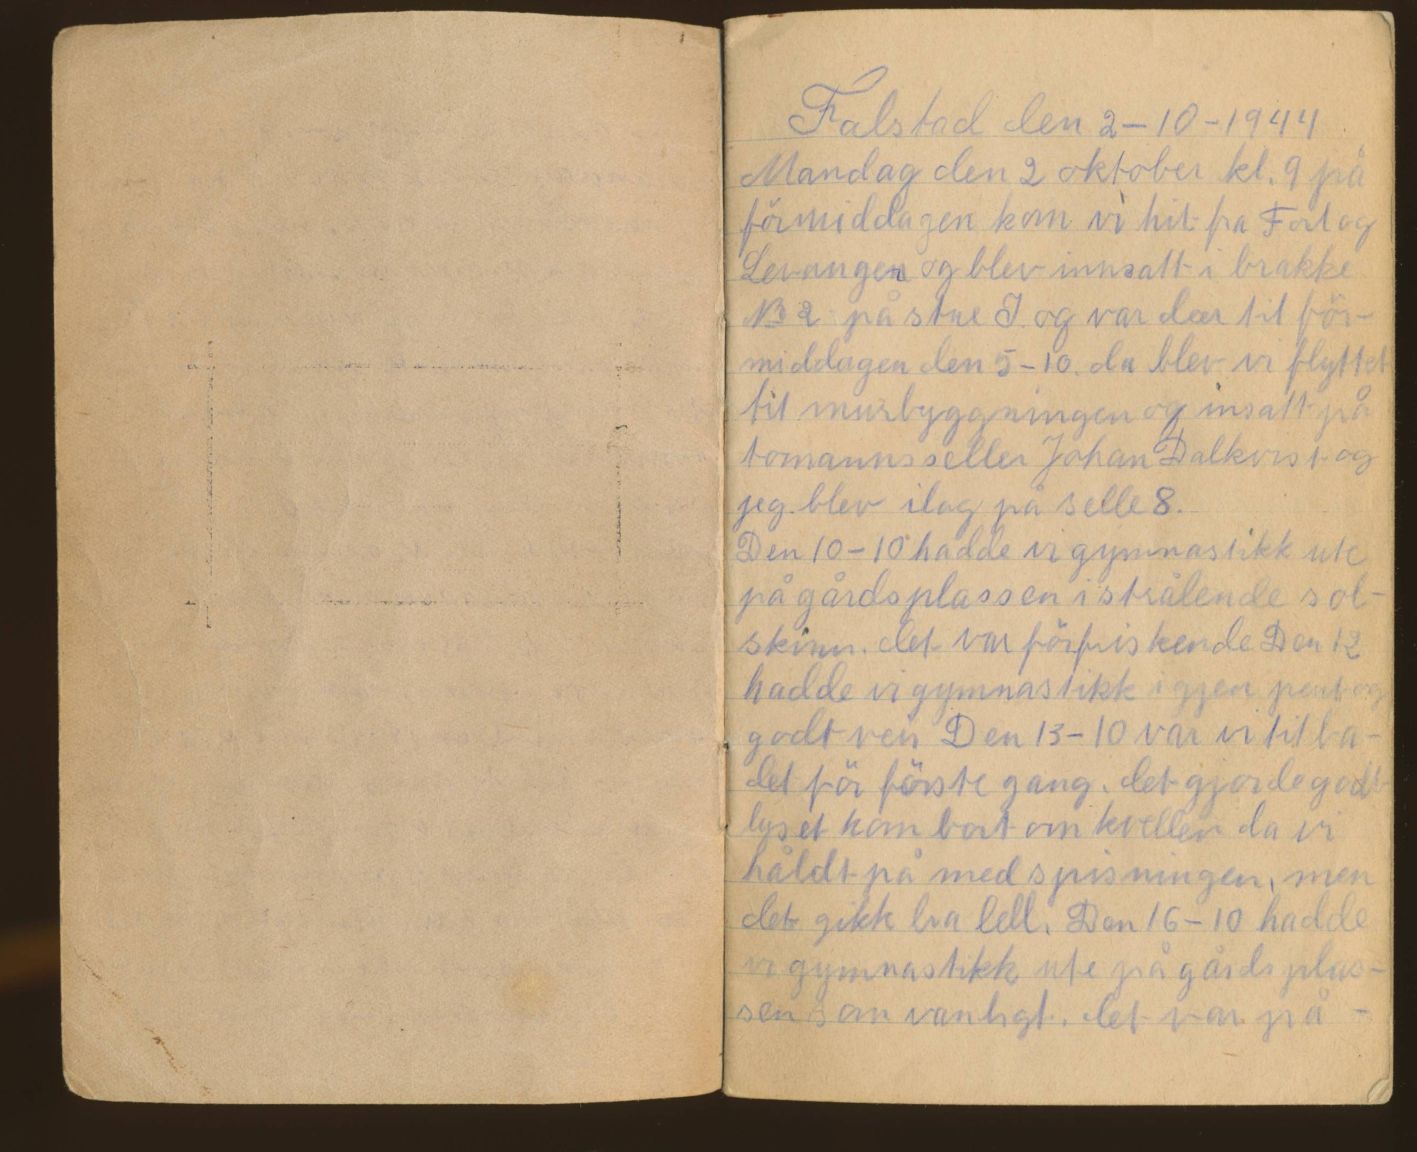 Falstad den 2-10-1944
Mandag den 2 oktober kl. 9 på
förmiddagen kom vi hit fra Fort og
Levangen og blev innsatt i brakke
№ 2 på stue I. og var dær til för-
middagen den 5-10. da blev vi flyttet
til murbyggningen og insatt på
tomannsseller Johan Dalkvist og
jeg blev ilag på selle 8.
Den 10-10 hadde vi gymnastikk ute
på gårdsplassen i strålende sol-
skinn. det var förfriskende Den 12
hadde vi gymnastikk igjen pent og
godt veir Den 13-10 var vi til ba-
det för förste gang. det gjorde godt
lyset kom bort om kvellen da vi
håldt på med spisningen, men
det gikk bra lell. Den 16-10 hadde
vi gymnastikk ute på gårds plas-
sen som vanligt. det var på -